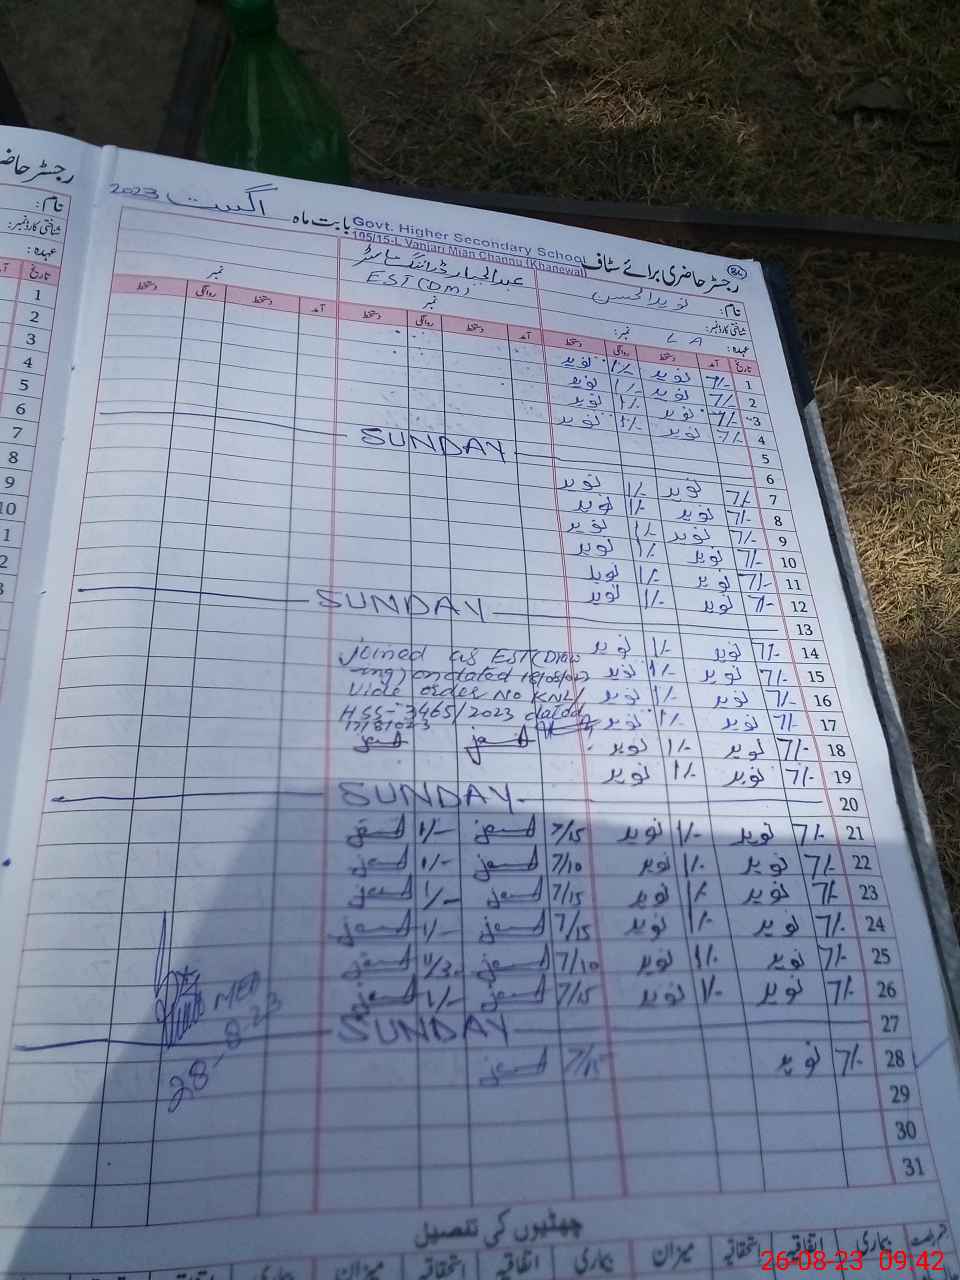 رجسٹر حاضری برائے سٹاف
Govt. Higher Secondary School
105/15-L Vanjari Mian Channu (Khanewal)
بابت ماہ اگست 2023
نام: نوید الحسن
عبدالجبار ڈرائنگ ماسٹر
EST (DM)
شناختی کارڈ نمبر:
نمبر:
نمبر
نمبر
عہدہ: LA
تاریخ آمد دستخط روانگی دستخط آمد دستخط روانگی دستخط آمد دستخط روانگی دستخط
1 7/- نوید 1/- نوید
2 7/- نوید 1/- نوید
3 7/- نوید 1/- نوید
4 7/- نوید 1/- نوید
5
6 SUNDAY
7 7/- نوید 1/- نوید
8 7/- نوید 1/- نوید
9 7/- نوید 1/- نوید
10 7/- نوید 1/- نوید
11 7/- نوید 1/- نوید
12 7/- نوید 1/- نوید
13 SUNDAY
14 7/- نوید 1/- نوید
15 7/- نوید 1/- نوید
16 7/- نوید 1/- نوید
17 7/- نوید 1/- نوید
joined as EST (Draw
ing) on dated
vide order No KNL/
HSS-3465/2023 dated
18 7/- نوید 1/- نوید
19 7/- نوید 1/- نوید
20 SUNDAY
21 7/- نوید 1/- نوید 7/15 1/-
22 7/- نوید 1/- نوید 7/10 1/-
23 7/- نوید 1/- نوید 7/15 1/-
24 7/- نوید 1/- نوید 7/15 1/-
25 7/- نوید 1/- نوید 7/10 11/30
26 7/- نوید 1/- نوید 7/15 1/-
27 SUNDAY
28 7/- نوید 7/15
29
30
31
MEA
28-8-23
چھٹیوں کی تفصیل
بیماری اتفاقیہ استحقاقیہ میزان بیماری اتفاقیہ استحقاقیہ میزان
رجسٹر
نام:
شناختی کارڈ نمبر:
عہدہ:
تاریخ
1
2
3
4
5
6
7
8
9
10
26-08-23 09:42